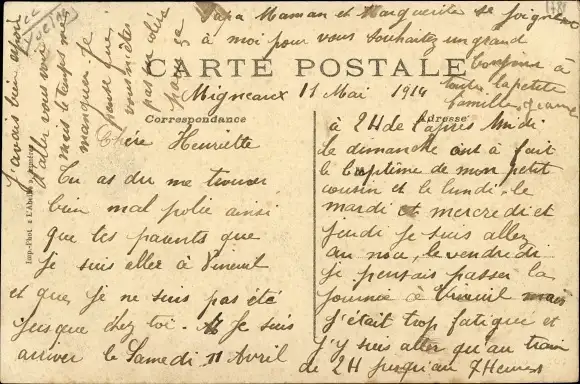 Migneaux 11 Mai 1914
CARTE POSTALE
Correspondance
Adresse
Chère Henriette
Tu as du me trouver
bien mal polie ainsi
que tes parents que
je suis aller à Vineuil
et que je ne suis pas été
jusque chez toi. Je suis
arriver le Samedi 11 Avril
à 2H de l'après Midi
le dimanche ont à fait
le baptême de mon petit
cousin et le lundi, le
mardi et mercredi et
jeudi je suis allez
au nou, le vendredi
je pensais passer la
journée à Vineuil mais
j'était trop fatigué et
j'y suis aller qu'au train
de 2H jusqu'au 7 Heures
J'avais bien espoir
d'aller vous voir
mais le temps m'a
manquer. Je
pense que
vous n'êtes
pas en colère
pour ça
Papa Maman et Marguerite se joignent
à moi pour vous souhaitez un grand
bonjour à
toute la petite
famille
Imp.-Phot. à L'Abeille